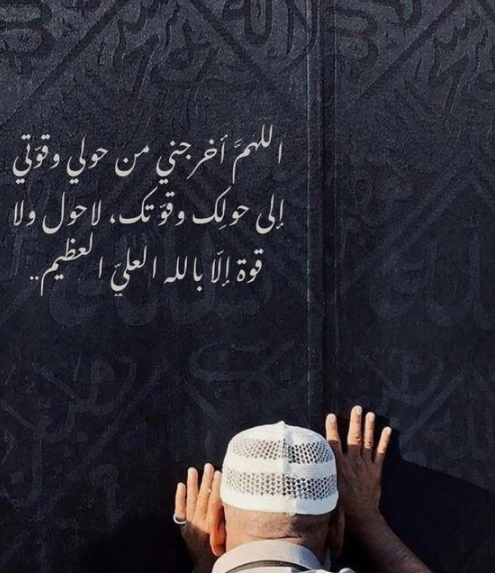 اللهمَّ أخرجني من حولي وقوّتي
إلى حولِك وقوّتك، لاحول ولا
قوة إلّا بالله العليّ العظيم..